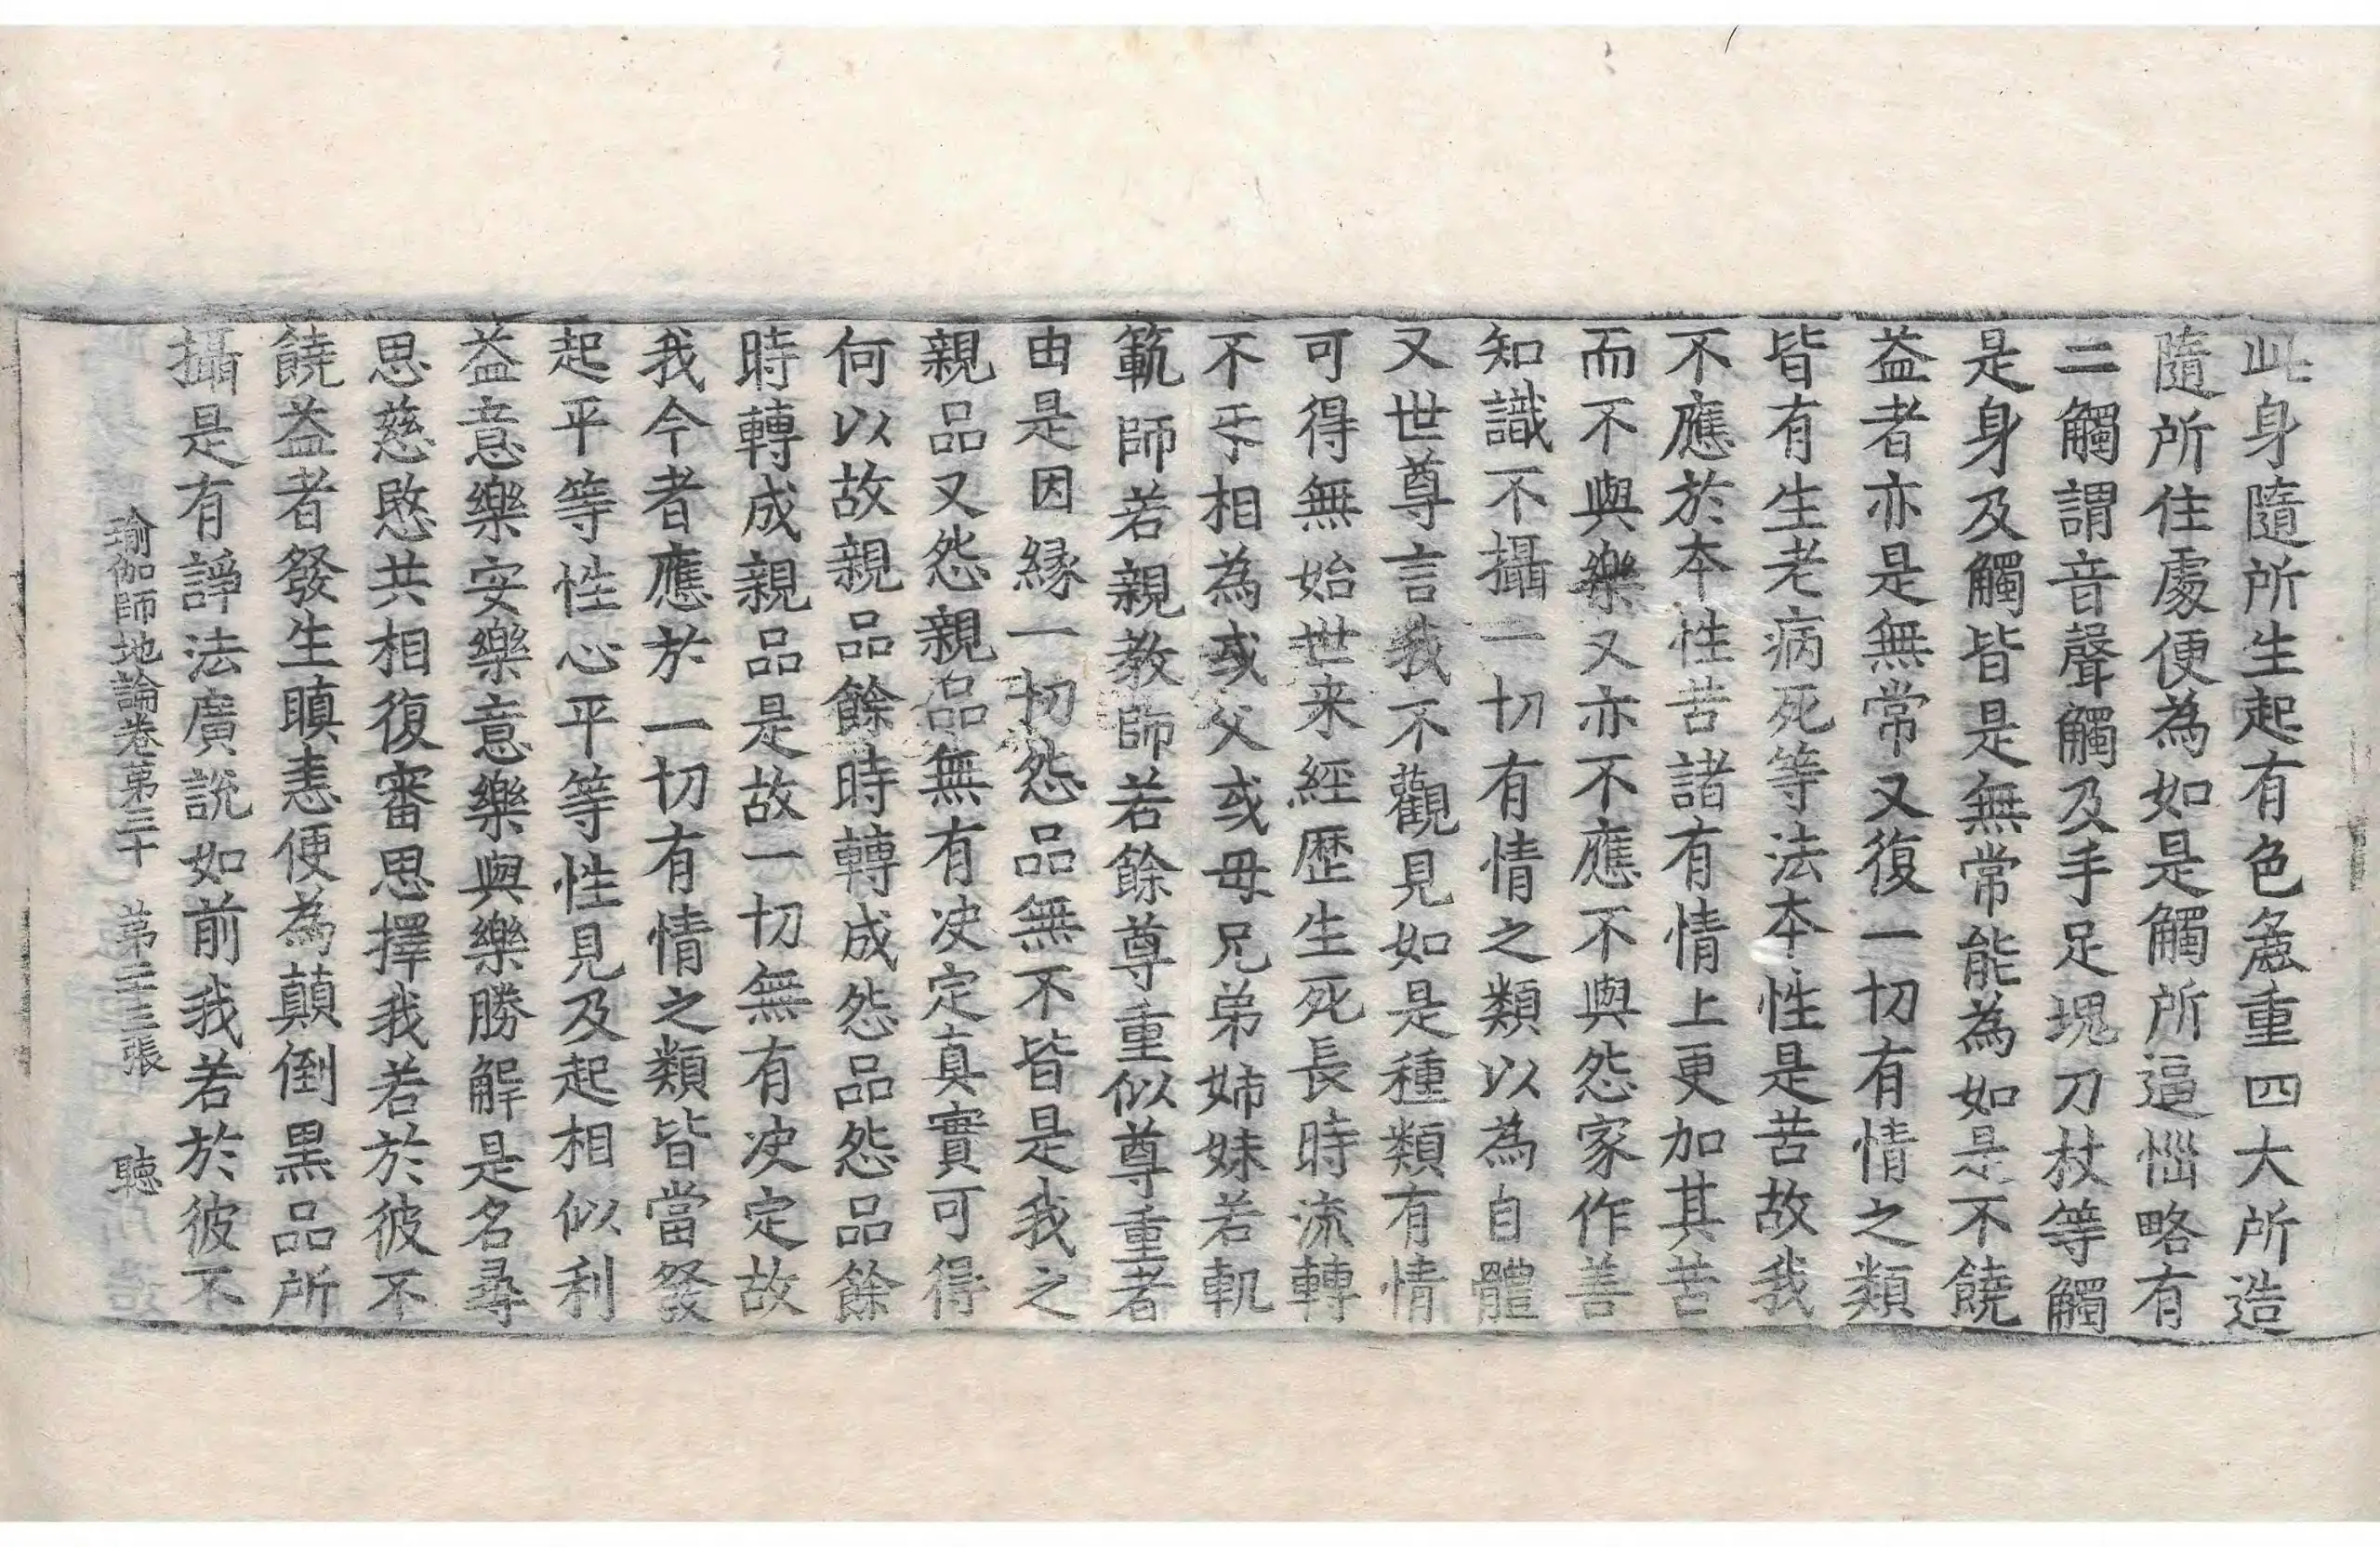 此身隨所生起有色麁重四大所造
隨所住處便為如是觸所逼惱略有
二觸謂音聲觸及手足塊刀杖等觸
是身及觸皆是無常能為如是不饒
益者亦是無常又復一切有情之類
皆有生老病死等法本性是苦故我
不應於本性苦諸有情上更加其苦
而不與樂又亦不應不與怨家作善
知識不攝一切有情之類以為自體
又世尊言我不觀見如是種類有情
可得無始世来經歷生死長時流轉
不㸦相為或父或母兄弟姉妹若軌
範師若親教師若餘尊重似尊重者
由是因縁一切怨品無不皆是我之
親品又怨親品無有决定真實可得
何以故親品餘時轉成怨品怨品餘
時轉成親品是故一切無有决定故
我今者應於一切有情之類皆當發
起平等性心平等性見及起相似利
益意樂安樂意樂與樂勝解是名尋
思慈愍共相復審思擇我若於彼不
饒益者發生瞋恚便為顛倒黒品所
攝是有諍法廣說如前我若於彼不
瑜伽師地論卷第三十 第二三張 聴